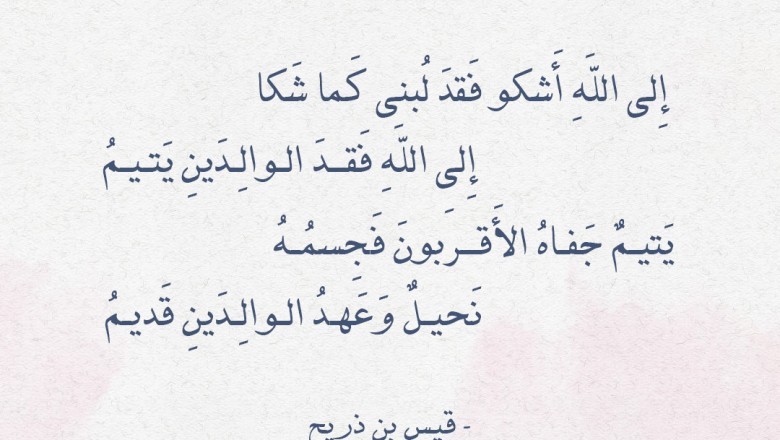 إِلى اللَهِ أَشكو فَقدَ لُبنى كَما شَكا
إِلى اللَهِ فَقــدَ الـوالِـدَينِ يَتـيـمُ
يَتيـمٌ جَفـاهُ الأَقــرَبونَ فَجِسمُـهُ
نَحيـلٌ وَعَهـدُ الـوالِـدَينِ قَديـمُ
- قيس بن ذريح